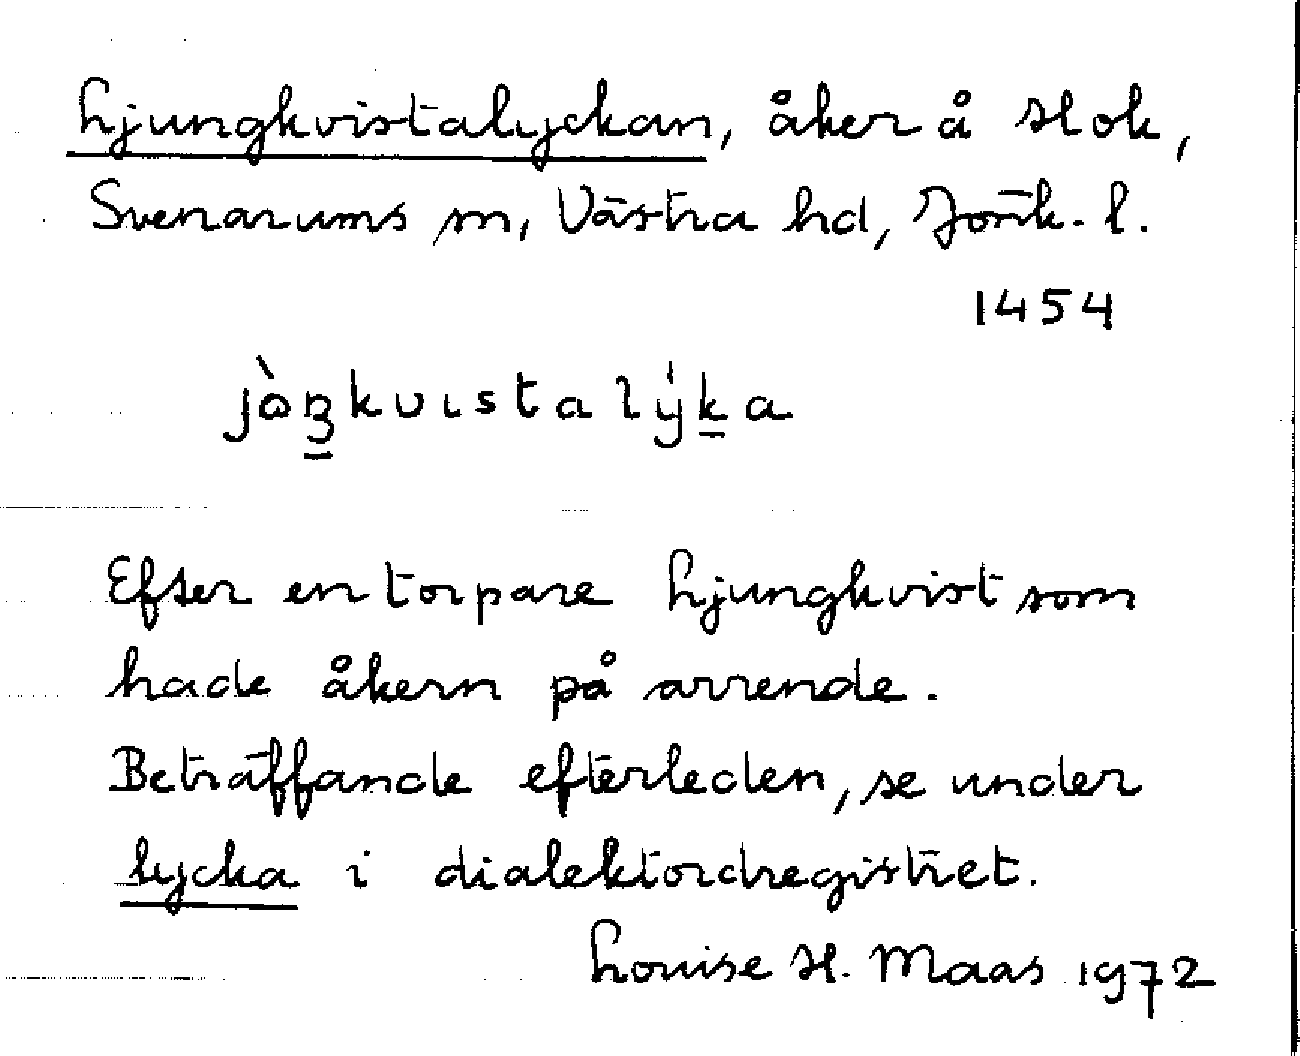 Ljungkvistalyckan, åker å Hok,
Svenarums sn, Västra hd, Jönk. l.
1454
jòŋkvɩstalýka
Efter en torpare Ljungkvist som
hade åkern på arrende.
Beträffande efterleden, se under
lycka i dialektordregistret.
Louise H. Maas 1972